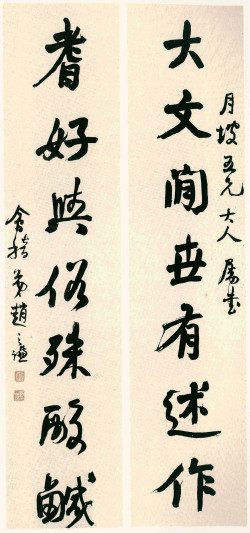 月坡五兄大人属书
大文閒世有述作
耆好與俗殊酸鹹
會稽弟趙之謙